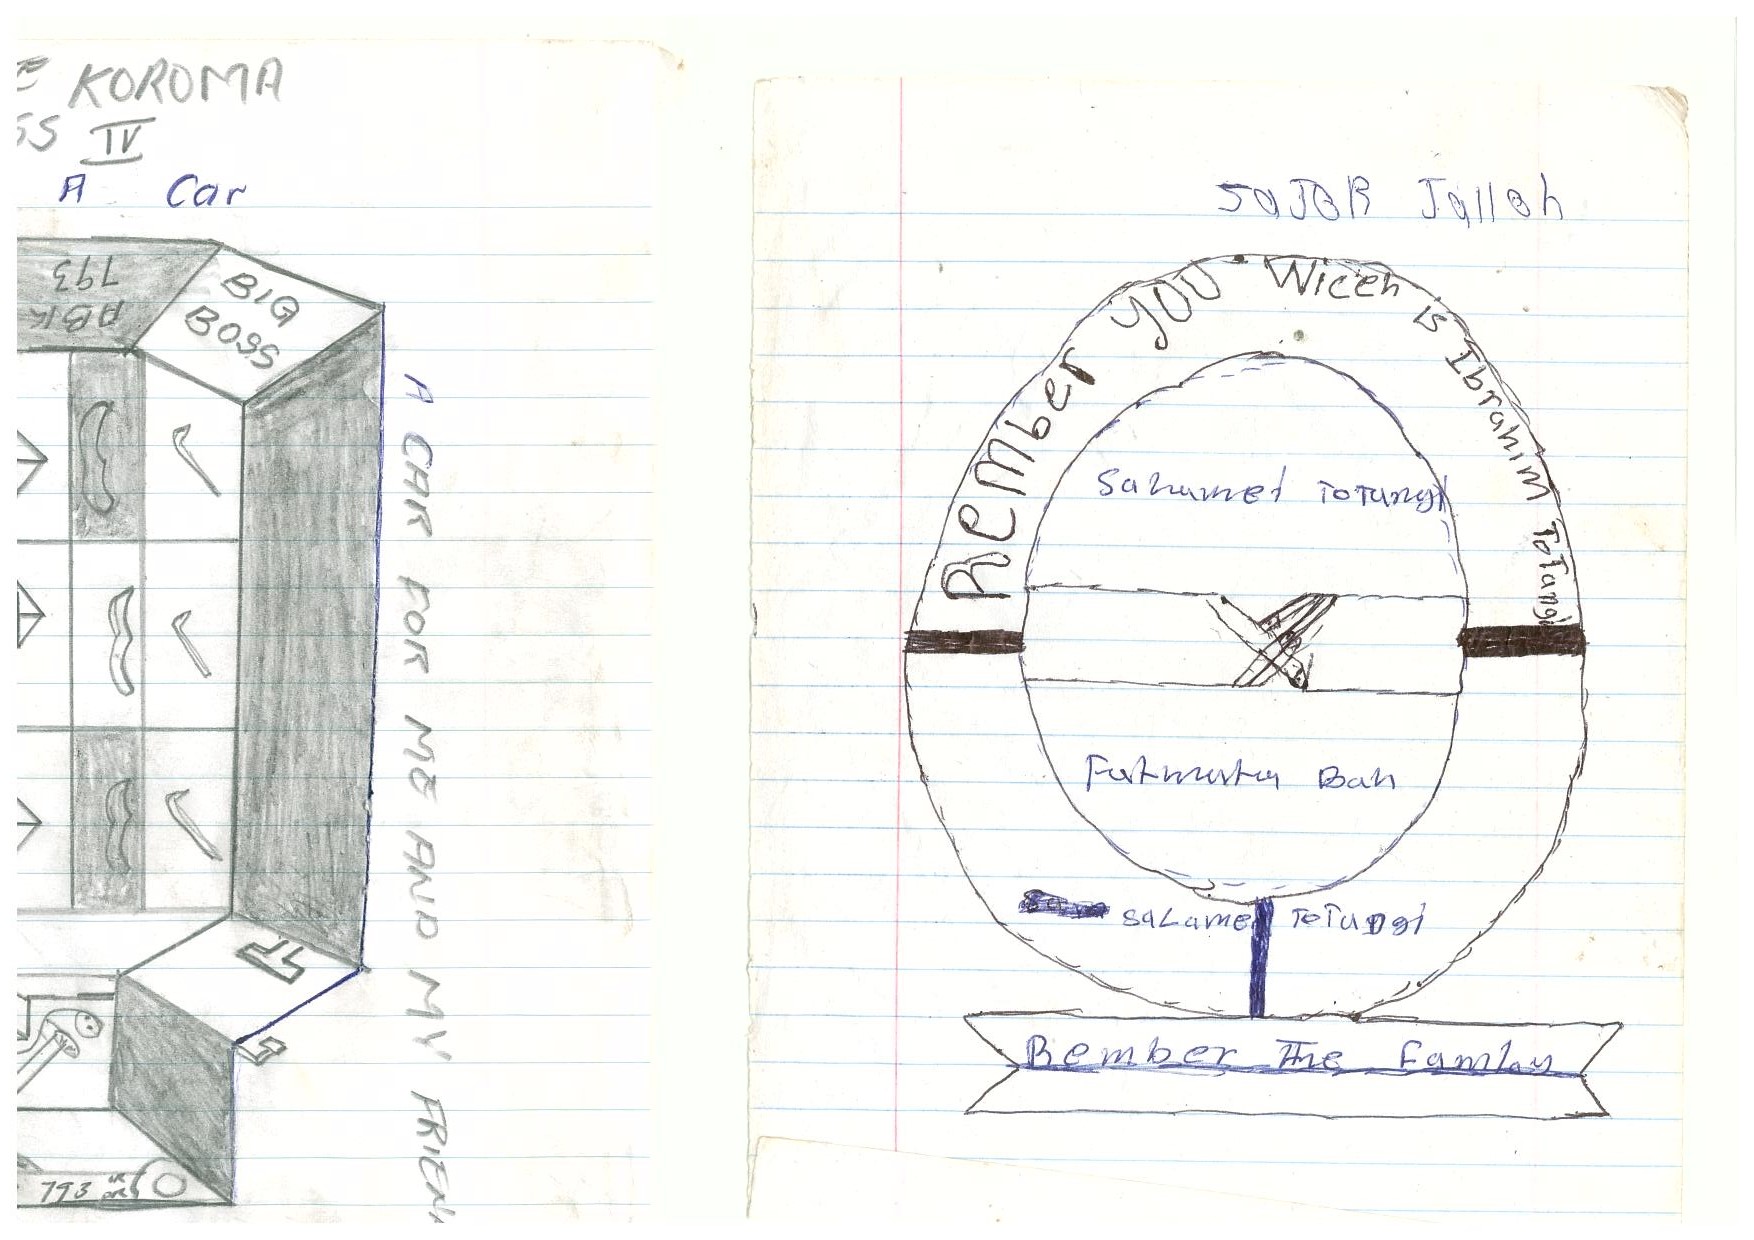 KOROMA
SS IV
A Car
793
ABK
BIG
BOSS
A CAR FOR ME AND MY FRIEN
793
Jalloh
REMber YOU Wiceh is Ibrahim ToTangi
Sahumet ToTungi
Fatmata Bah
SaLamet ToTungi
Bember The Family